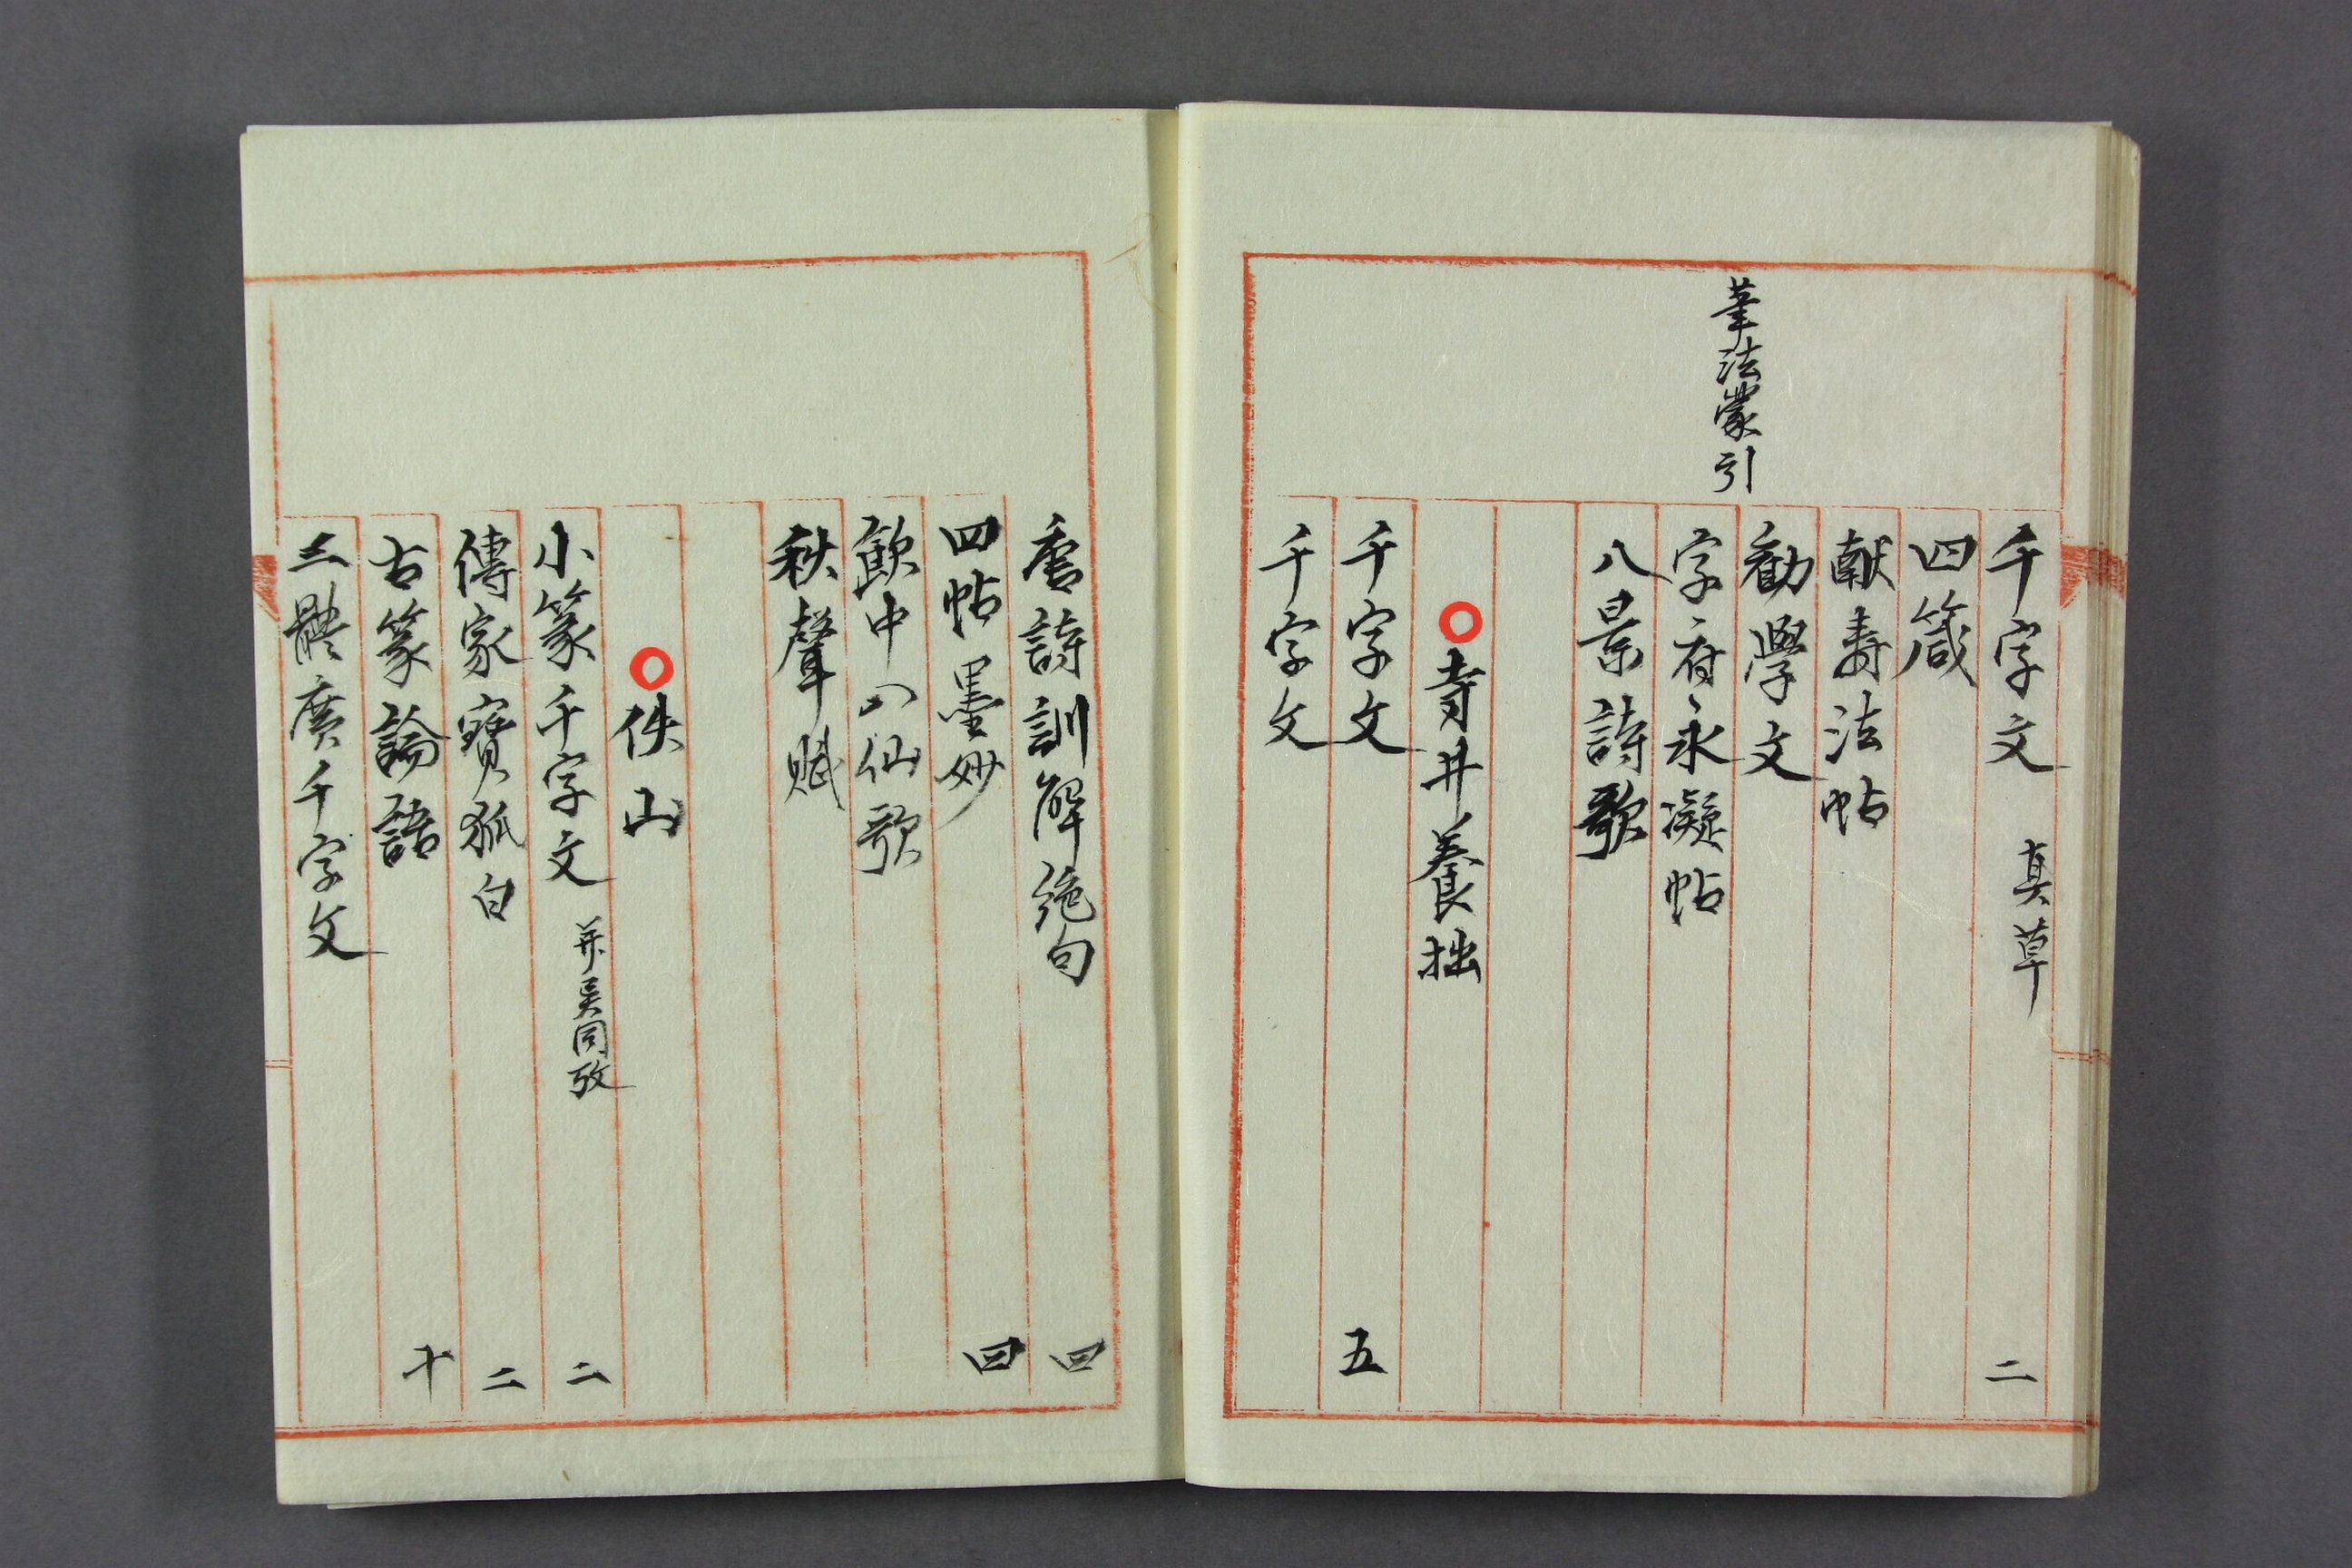 千字文 真草 二
四箴
筆法蒙引
献壽法帖
勧學文
字府永凝帖
八景詩歌
寺井養拙
千字文 五
千字文
唐詩訓解絶句 四
四帖墨妙 四
飲中八仙歌
秋聲賦
佚山
小篆千字文 并異同攷 二
傳家寶狐白 二
古篆論語 十
三體廣千字文